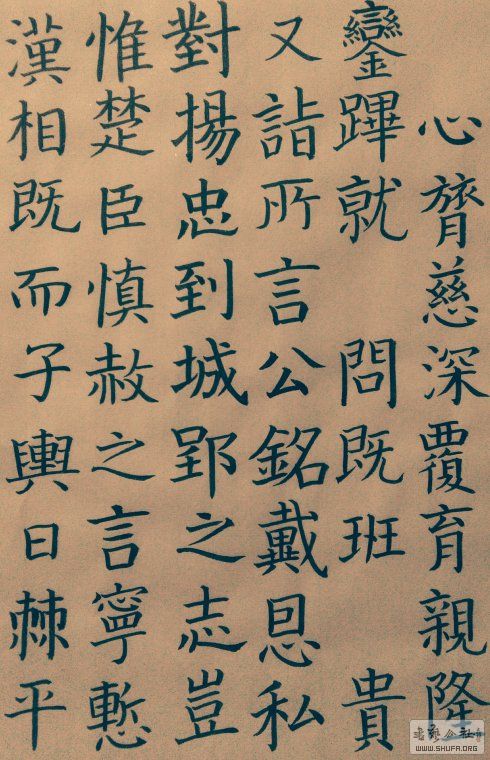 心膂慈深覆育親降
鑾蹕就 問既班 貴
又詣所言公銘戴恩私
對揚忠到城郢之志豈
惟楚臣慎赦之言寧慙
漢相既而子輿曰棘平
WWW.SHUFA.ORG